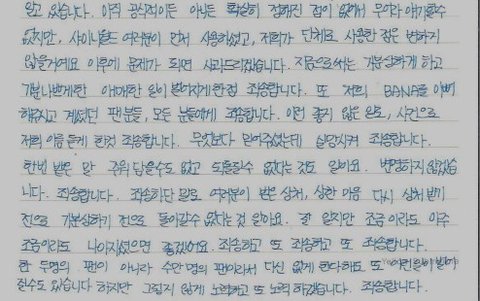 알고 있습니다. 아직 공식적이든 아니든 확실히 정해진 점이 없어서 무어라 얘기할수
없지만, 샤이니월드 여러분이 먼저 사용하셨고, 저희가 단체로 사용한 점은 변하지
않을거예요 이후에 문제가 되면 사과드리겠습니다. 지금으로써는 기분상하게 하고
기분나쁘게한 애매한 일이 벌어지게한점 죄송합니다. 또 저희 BANA를 이뻐
해주시고 계셨던 팬분들, 모든 분들에게 죄송합니다. 이런 좋지 않은 일로, 사건으로
저희 이름 듣게 한점 죄송합니다. 무엇보다 믿어주셨는데 실망시켜 죄송합니다.
한번 뱉은 말 주워 담을수도 없고 되돌릴수 없다는것도 알아요. 변명하지 않겠습
니다. 죄송합니다. 죄송하단 말로 여러분이 받은 상처, 상한 마음 다시 상처받기
전으로 기분상하기 전으로 돌아갈수없다는 것 알아요. 잘 알지만 조금이라도 아주
조금이라도 나아지셨으면 좋겠어요. 죄송하고 또 죄송하고 또 죄송합니다.
한 두명의 팬이 아니라 수만명의 팬이라서 다신 없게 한다해도 또 이런일이 벌어
질수도 있습니다 하지만 그렇지 않게 노력하고 또 노력하겠습니다. 죄송합니다.